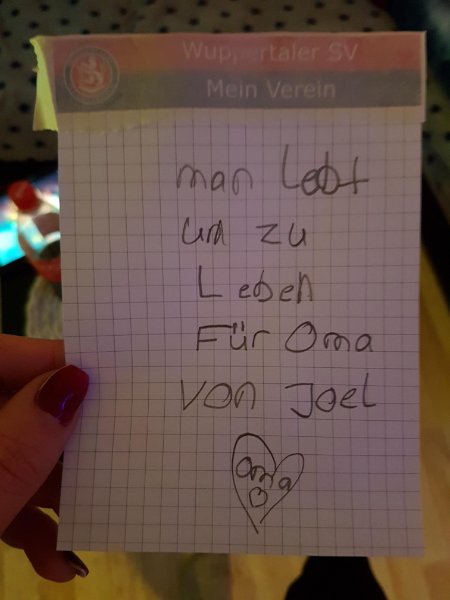 Wuppertaler SV
Mein Verein
man Lebt
um zu
Leben
Für Oma
von Joel
Oma